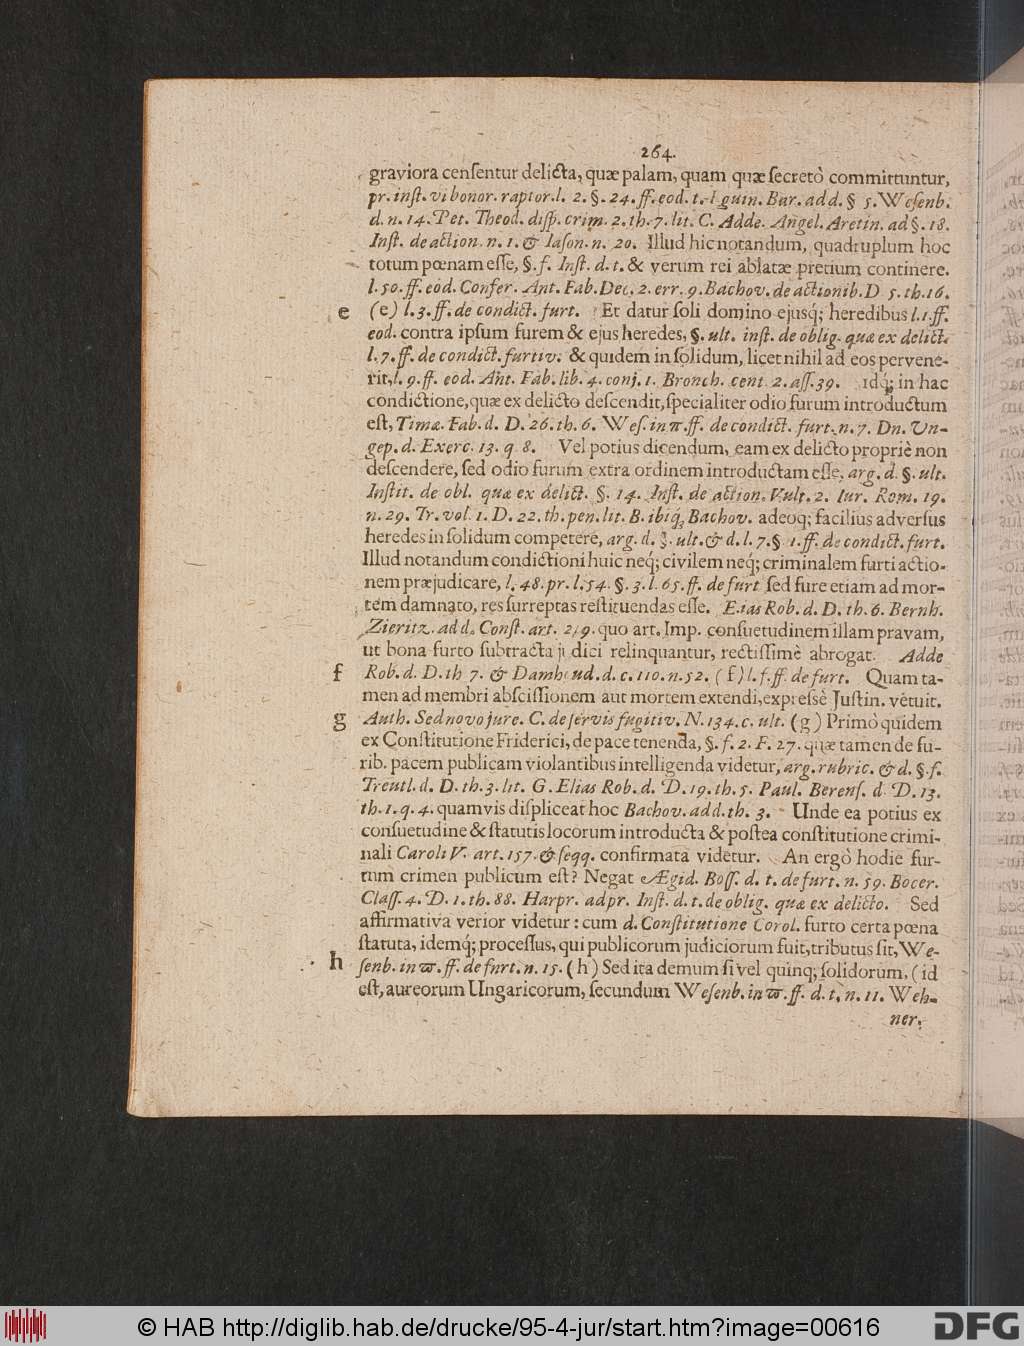 264.
graviora censentur delicta, quæ palam, quam quæ secretò committuntur,
pr. inst. vi bonor. raptor. l. 2. §. 24. ff. eod. t. Bar. add. § 5. Wesenb.
d. n. 14. Pet. Theod. disp. crim. 2. th. 7. lit. C. Adde. Angel. Aretin. ad §. 18.
Inst. de action. n. 1. & Iason. n. 20. Illud hic notandum, quadruplum hoc
totum pœnam esse, §. f. Inst. d. t. & verum rei ablatæ pretium continere.
l. 50. ff. eod. Confer. Ant. Fab. Dec. 2. err. 9. Bachov. de actionib. D 5. th. 16.
e (e) l. 3. ff. de condict. furt. Et datur soli domino ejusq́; heredibus l. 1. ff.
eod. contra ipsum furem & ejus heredes, §. ult. inst. de oblig. quæ ex delict.
l. 7. ff. de condict. furtiv. & quidem in solidum, licet nihil ad eos pervene-
rit, l. 9. ff. eod. Ant. Fab. lib. 4. conj. 1. Bronch. cent. 2. ass. 39. Idq́; in hac
condictione, quæ ex delicto descendit, specialiter odio furum introductum
est, Timæ. Fab. d. D. 26. th. 6. Wes. in π. ff. de condict. furt. n. 7. Dn. Un-
gep. d. Exerc. 13. q 8. Vel potius dicendum, eam ex delicto propriè non
descendere, sed odio furum extra ordinem introductam esse, arg. d. §. ult.
Instit. de obl. quæ ex delict. §. 14. Inst. de action. Vult. 2. Iur. Rom. 19.
n. 29. Tr. vol. 1. D. 22. th. pen. lit. B. ibiq́; Bachov. adeoq; facilius adversus
heredes in solidum competere, arg. d. §. ult. & d. l. 7. § 1. ff. de condict. furt.
Illud notandum condictioni huic neq́; civilem neq́; criminalem furti actio-
nem præjudicare, l. 48. pr. l. 54. §. 3. l. 65. ff. de furt sed fure etiam ad mor-
tem damnato, res surreptas restituendas esse. Elias Rob. d. D. th. 6. Bernh.
Zieritz. add. Const. art. 219. quo art. Imp. consuetudinem illam pravam,
ut bona furto subtracta judici relinquantur, rectissimè abrogat. Adde
f Rob. d. D. th 7. & Damhoud. d. c. 110. n. 52. (f) l. f. ff. de furt. Quam ta-
men ad membri abscissionem aut mortem extendi, expressè Justin. vetuit.
g Auth. Sed novo jure. C. de servis fugitiv. N. 134. c. ult. (g) Primò quidem
ex Constitutione Friderici, de pace tenenda, §. f. 2. F. 27. quæ tamen de fu-
rib. pacem publicam violantibus intelligenda videtur, arg. rubric. & d. §. f.
Treutl. d. D. th. 3. lit. G. Elias Rob. d. D. 19. th. 5. Paul. Berens. d. D. 13.
th. 1. q. 4. quamvis displiceat hoc Bachov. add. th. 3. Unde ea potius ex
consuetudine & statutis locorum introducta & postea constitutione crimi-
nali Caroli V. art. 157. & seqq. confirmata videtur. An ergò hodie fur-
tum crimen publicum est? Negat Ægid. Boss. d. t. de furt. n. 59. Bocer.
Class. 4. D. 1. th. 88. Harpr. ad pr. Inst. d. t. de oblig. quæ ex delicto. Sed
affirmativa verior videtur: cum d. Constitutione Corol. furto certa pœna
statuta, idemq́; processus, qui publicorum judiciorum fuit, tributus sit, We-
h senb. in ϖ. ff. de furt. n. 15. (h) Sed ita demum si vel quinq; solidorum, (id
est, aureorum Ungaricorum, secundum Wesenb. in ϖ. ff. d. t. n. 11. Weh-
ner.
© HAB http://diglib.hab.de/drucke/95-4-jur/start.htm?image=00616
DFG